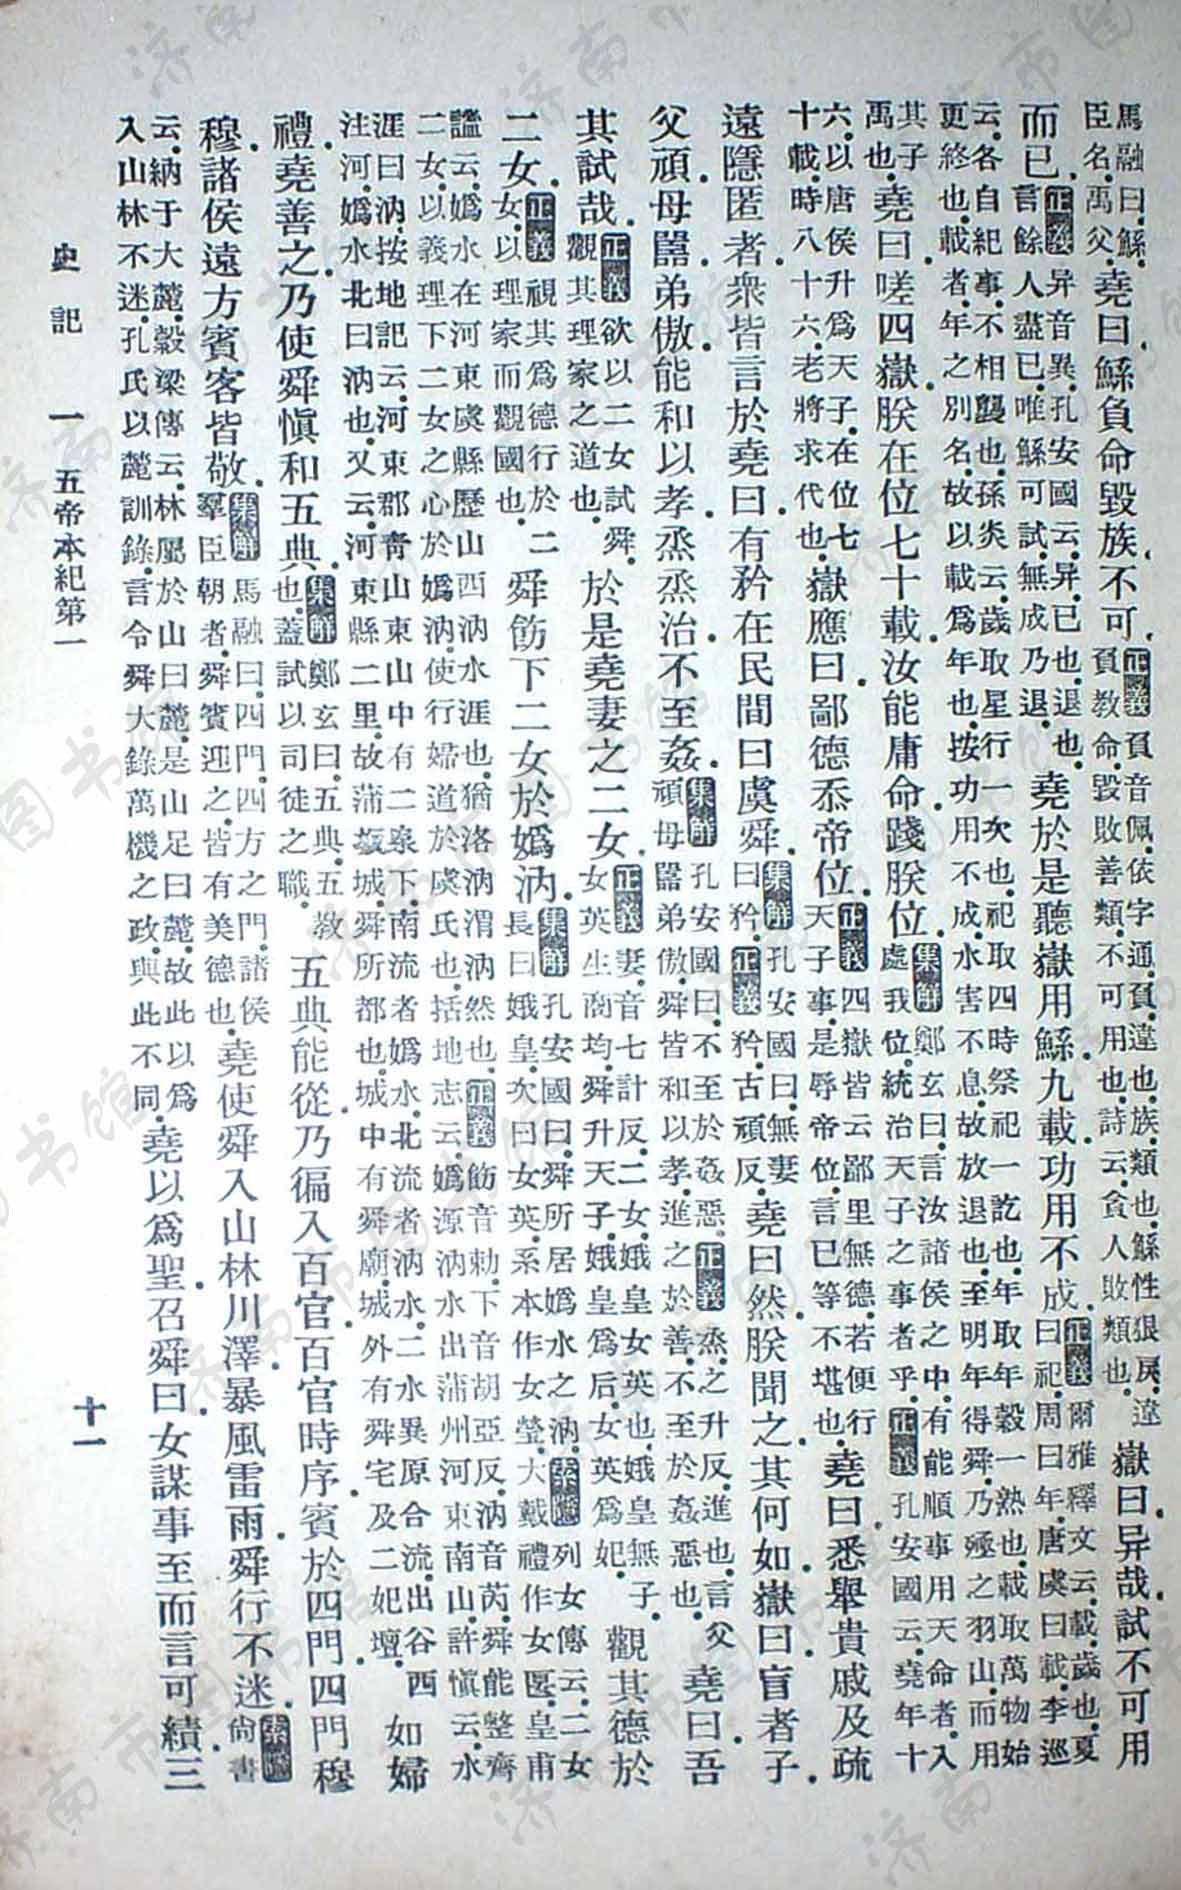 馬融曰.鯀.
臣名.禹父.
堯曰.鯀負命毀族.不可.
正義負音佩.依字通.負違也.族類也.鯀性狠戾.違
負教命.毀敗善類.不可用也.詩云.貪人敗類也.
嶽曰.异哉.試不可用
而已.
正義异音異.孔安國云.异已也.退也.
言餘人盡已.唯鯀可試.無成乃退.
堯於是聽嶽用鯀.九載.功用不成.
正義爾雅釋文云.載歲也.夏
曰祀.周曰年.唐虞曰載.李巡
云.各自紀事.不相襲也.孫炎云.歲取星行一次也.祀取四時祭祀一訖也.年取年穀一熟也.載取萬物始
更終也.載者.年之別名.故以載爲年也.按.功用不成.水害不息.故放退也.至明年得舜.乃殛之羽山.而用
其子
禹也.
堯曰.嗟.四嶽.朕在位七十載.汝能庸命.踐朕位.
集解鄭玄曰.言汝諸侯之中.有能順事用天命者.入
處我位.統治天子之事者乎.正義孔安國云.堯年十
六.以唐侯升爲天子.在位七
十載.時八十六.老將求代也.
嶽應曰.鄙德忝帝位.
正義四嶽皆云.鄙里無德.若便行
天子事.是辱帝位.言已等不堪也.
堯曰.悉舉貴戚及疏
遠隱匿者.衆皆言於堯曰.有矜在民間曰虞舜.
集解孔安國曰.無妻
曰矜.正義矜.古頑反.
堯曰.然.朕聞之.其何如.嶽曰.盲者子.
父頑.母嚚.弟傲.能和以孝.烝烝治.不至姦.
集解孔安國曰.不至於姦惡.正義烝之升反.進也.言父
頑母嚚弟傲.舜皆和以孝.進之於善.不至於姦惡也.
堯曰.吾
其試哉.
正義欲以二女試舜.
觀其理家之道也.
於是堯妻之二女.
正義妻音七計反.二女.娥皇女英也.娥皇無子.
女英生商均.舜升天子.娥皇爲后.女英爲妃.
觀其德於
二女.
正義視其爲德行於二
女.以理家而觀國也.
舜飭下二女於嬀汭.
集解孔安國曰.舜所居嬀水之汭.索隱列女傳云.二女
長曰娥皇.次曰女英.系本作女瑩.大戴禮作女匽.皇甫
謐云.嬀水在河東虞縣歷山西.汭水涯也.猶洛汭渭汭然也.正義飭音勅.下音胡亞反.汭音芮.舜能整齊
二女以義.理下二女之心於嬀汭.使行婦道於虞氏也.括地志云.嬀源汭水.出蒲州河東南山.許愼云.水
涯曰汭.按地記云.河東郡青山東山中有二泉.下南流者嬀水.北流者汭水.二水異原合流.出谷西
注河.嬀水北曰汭也.又云.河東縣二里.故蒲坂城.舜所都也.城中有舜廟.城外有舜宅及二妃壇.
如婦
禮.堯善之.乃使舜愼和五典.
集解鄭玄曰.五典.五教
也.蓋試以司徒之職.
五典能從.乃徧入百官.百官時序.賓於四門.四門穆
穆.諸侯遠方賓客皆敬.
集解馬融曰.四門.四方之門.諸侯
羣臣朝者.舜賓迎之.皆有美德也.
堯使舜入山林川澤.暴風雷雨.舜行不迷.
索隱
尚書
云.納于大麓.穀梁傳云.林屬於山曰麓.是山足曰麓.故此以爲
入山林不迷.孔氏以麓訓錄.言令舜大錄萬機之政.與此不同.
堯以爲聖.召舜曰.女謀事至而言可績.三
史記 一 五帝本紀第一 十一
济南市图书馆